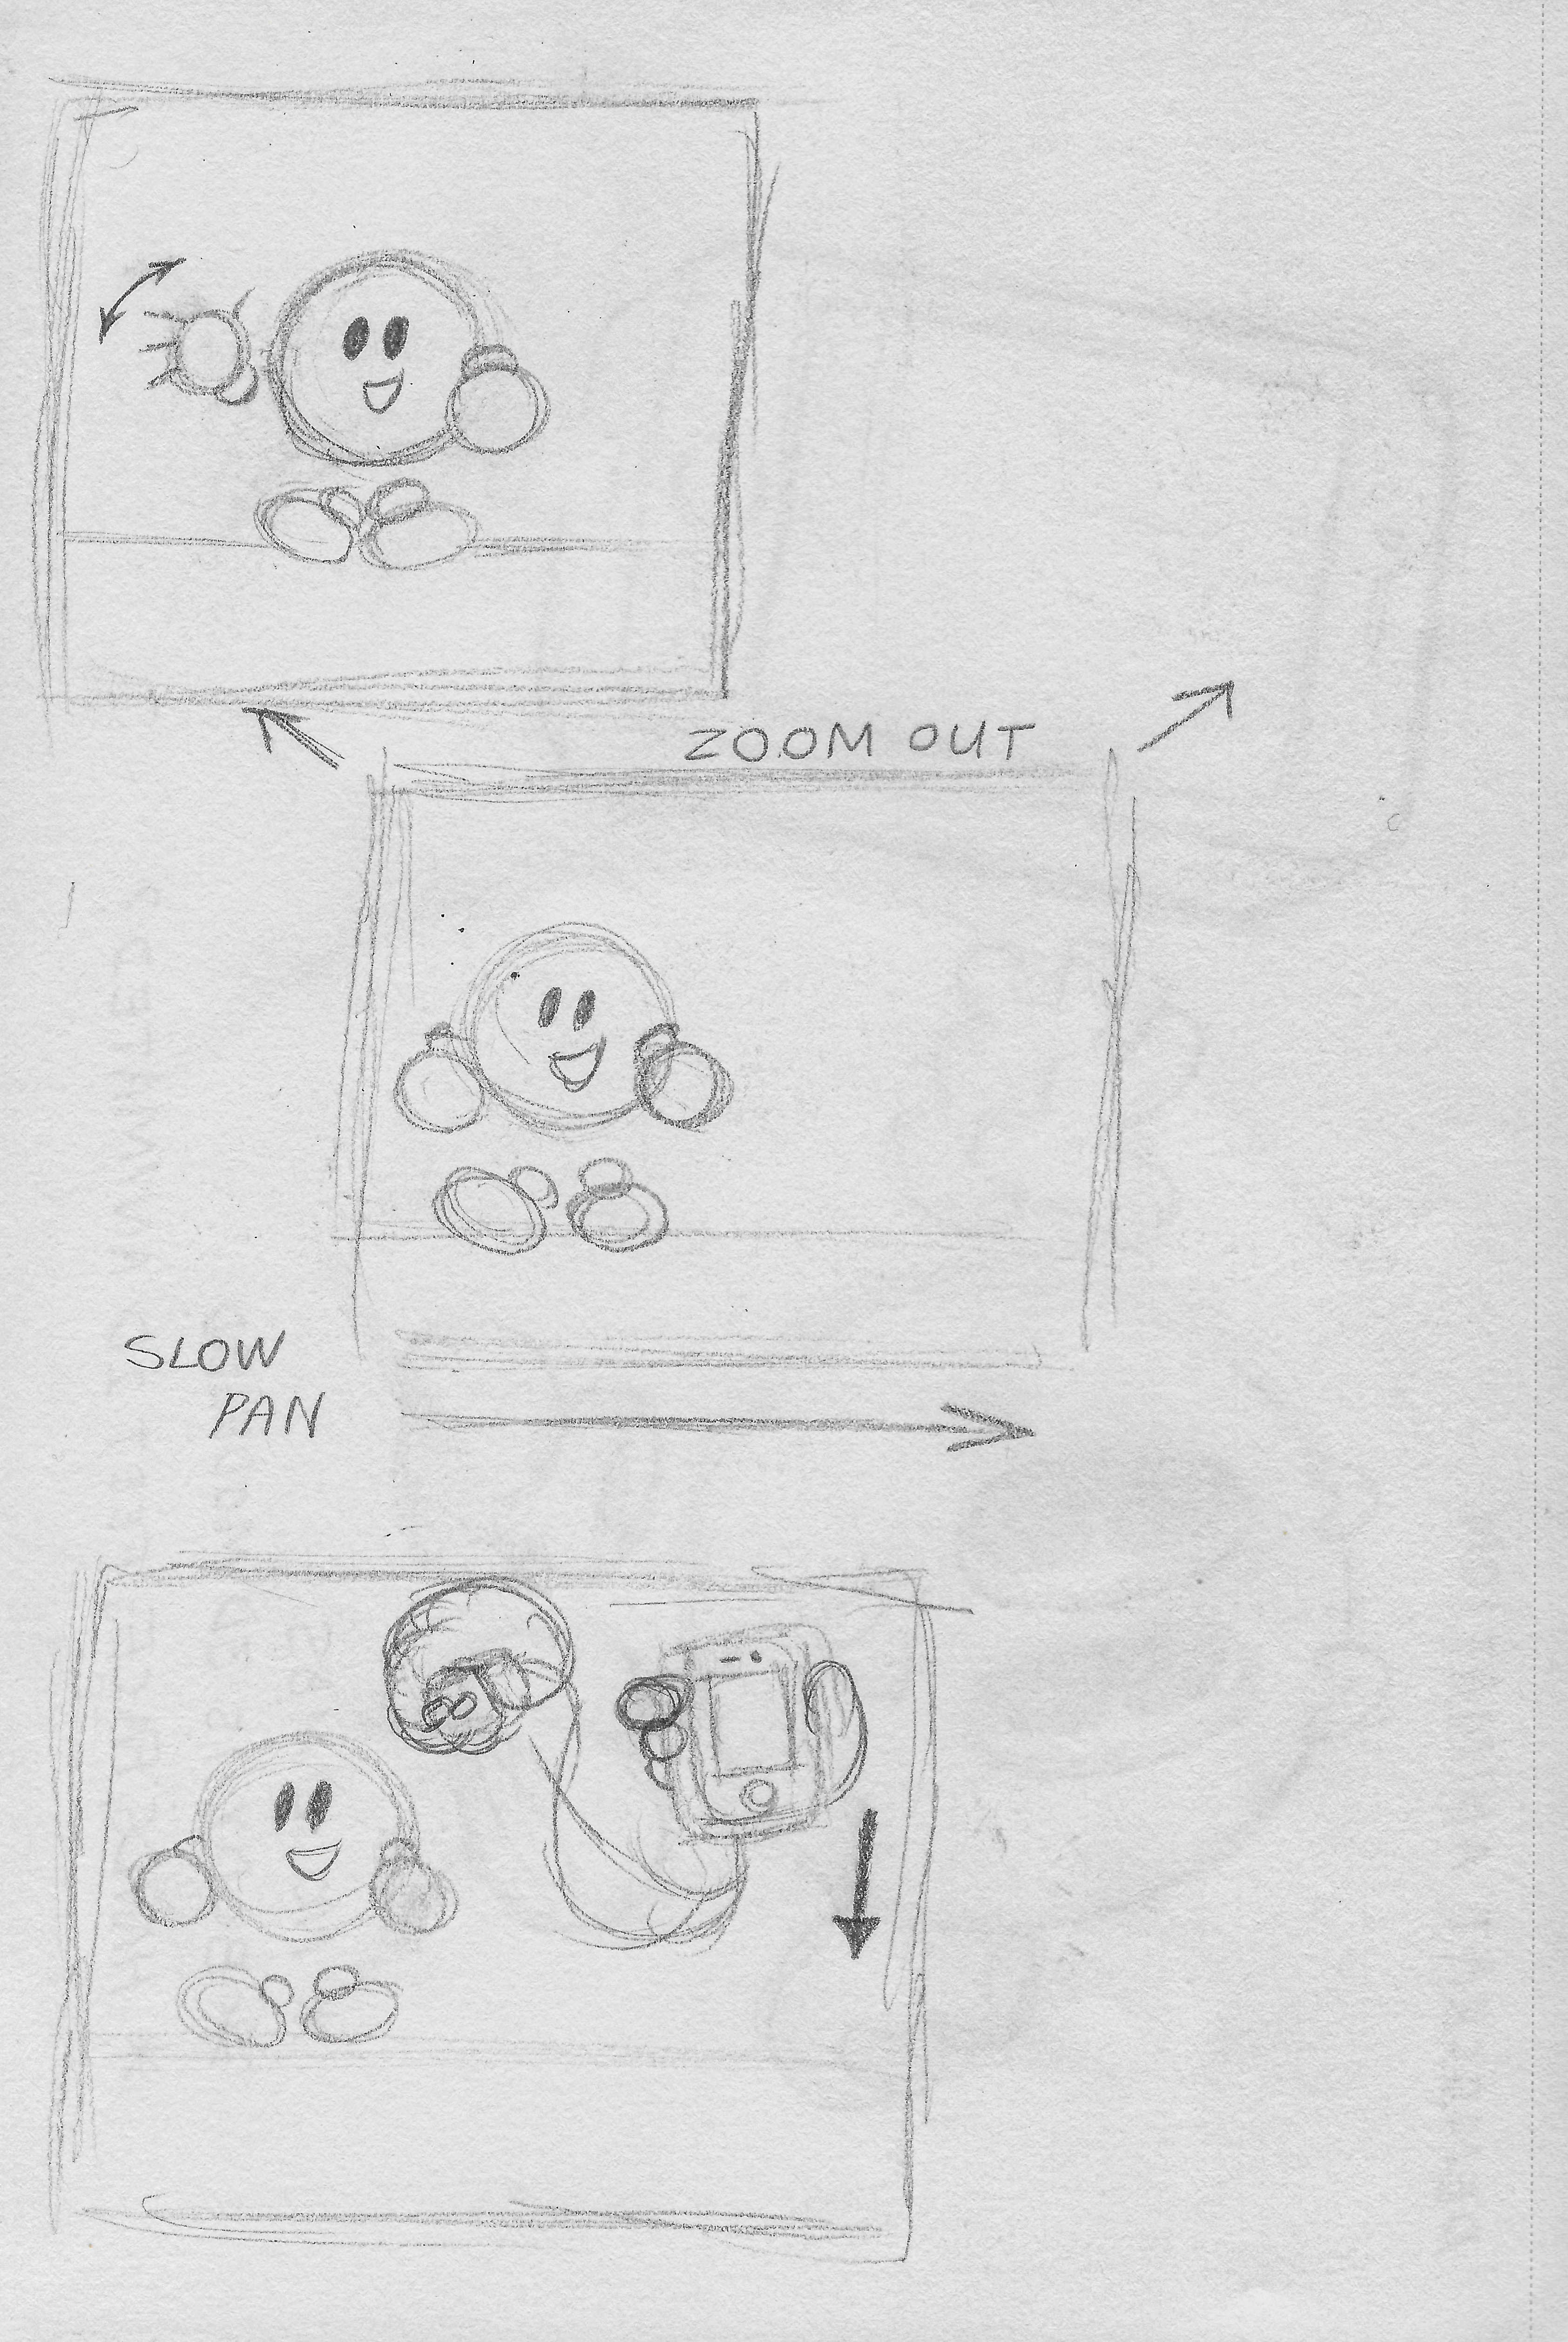 ZOOM OUT
SLOW
PAN